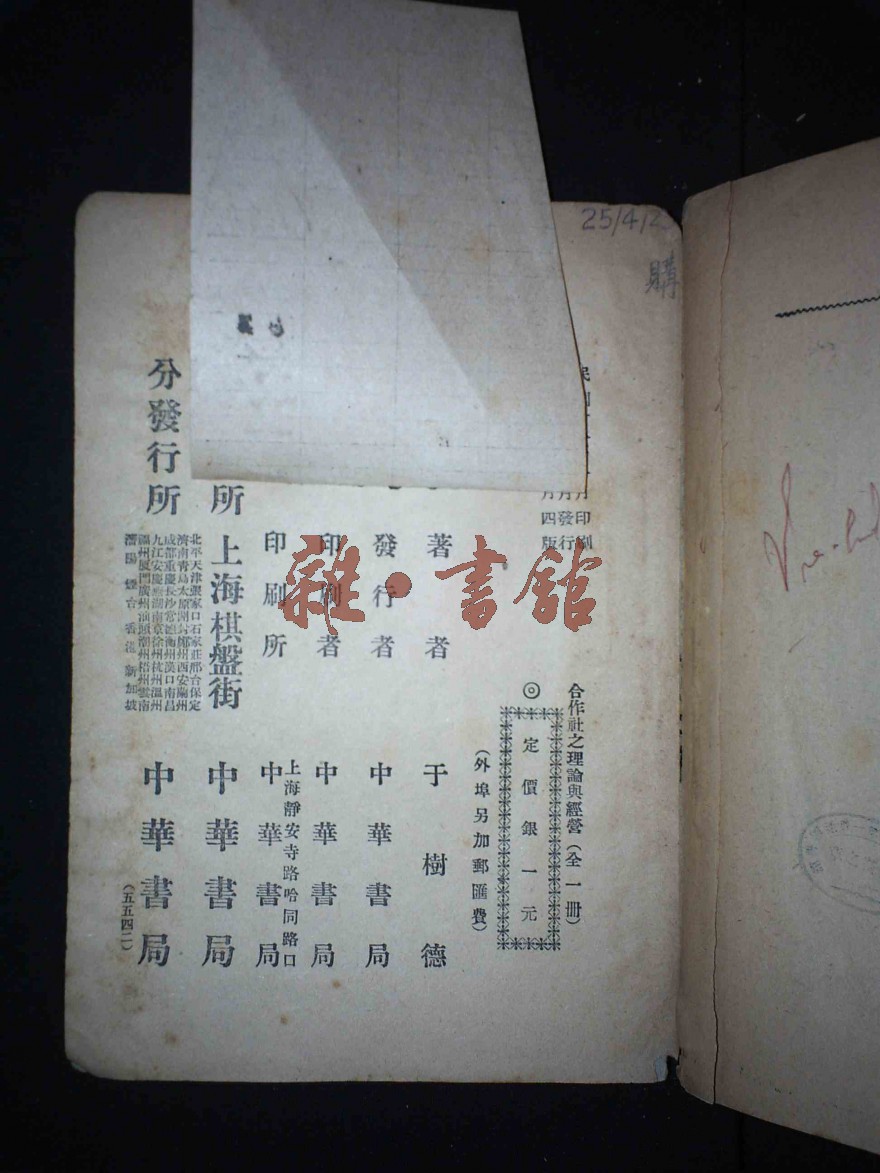 25/4/2
購
月印刷
月發行
月四版
合作社之理論與經營（全一冊）
◎
定價銀一元
（外埠另加郵匯費）
著者 于樹德
發行者 中華書局
印刷者 中華書局
上海靜安寺路哈同路口
印刷所 中華書局
所 上海棋盤街 中華書局
分發行所 中華書局
北平天津張家口石家莊邢台保定
濟南青島太原開封鄭州西安蘭州
成都重慶長沙常德衡州漢口南昌
九江安慶蕪湖南京徐州杭州溫州
福州廈門廣州汕頭潮州梧州雲南
瀋陽 煙台 香港 新加坡
（五五四二）
雜·書館